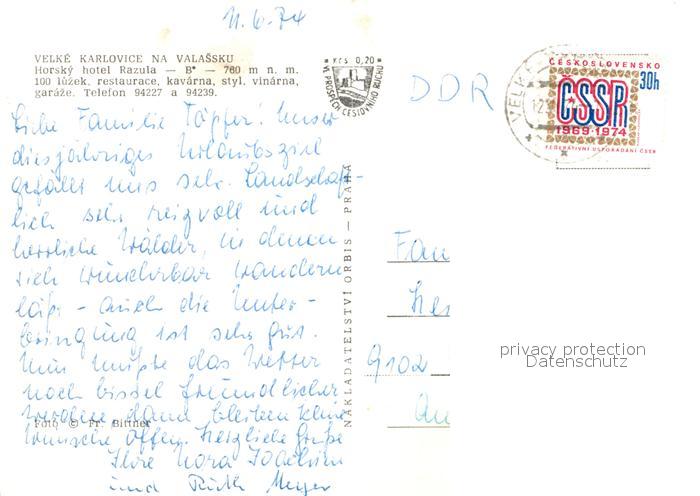 11.6.74
VELKÉ KARLOVICE NA VALAŠSKU
Horský hotel Razula — B* — 760 m n. m.
100 lůžek, restaurace, kavárna, styl. vinárna,
garáže. Telefon 94227 a 94239.
KčS 0,20
VE PROSPĚCH CESTOVNÍHO RUCHU
DDR
VELKÉ
ČESKOSLOVENSKO
30h
ČSSR
1969·1974
FEDERATIVNÍ USPOŘÁDÁNÍ ČSSR
Liebe Familie Töpfer! Unser
diesjähriges Urlaubsziel
gefällt uns sehr. Landschaft-
lich sehr reizvoll und
herrliche Wälder, in denen
sich wunderbar wandern
läßt - auch die Unter-
bringung ist sehr gut.
Nun müßte das Wetter
noch bissel freundlicher
werden, dann bleiben keine
Wünsche offen. Herzliche Grüße
Ihre Nora
und Ruth Meyer
Foto © Fr. Bittner
NAKLADATELSTVÍ ORBIS — PRAHA
Fam
9102
privacy protection
Datenschutz